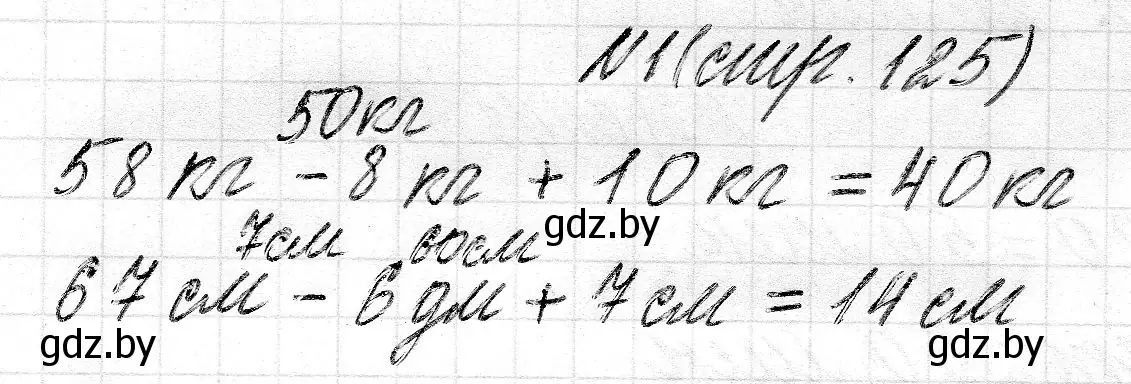 №1(стр. 125)
50кг
58 кг - 8 кг + 10 кг = 40 кг
gdz.by
7см 60см
67 см - 6 дм + 7 см = 14 см
gdz.by gdz.by